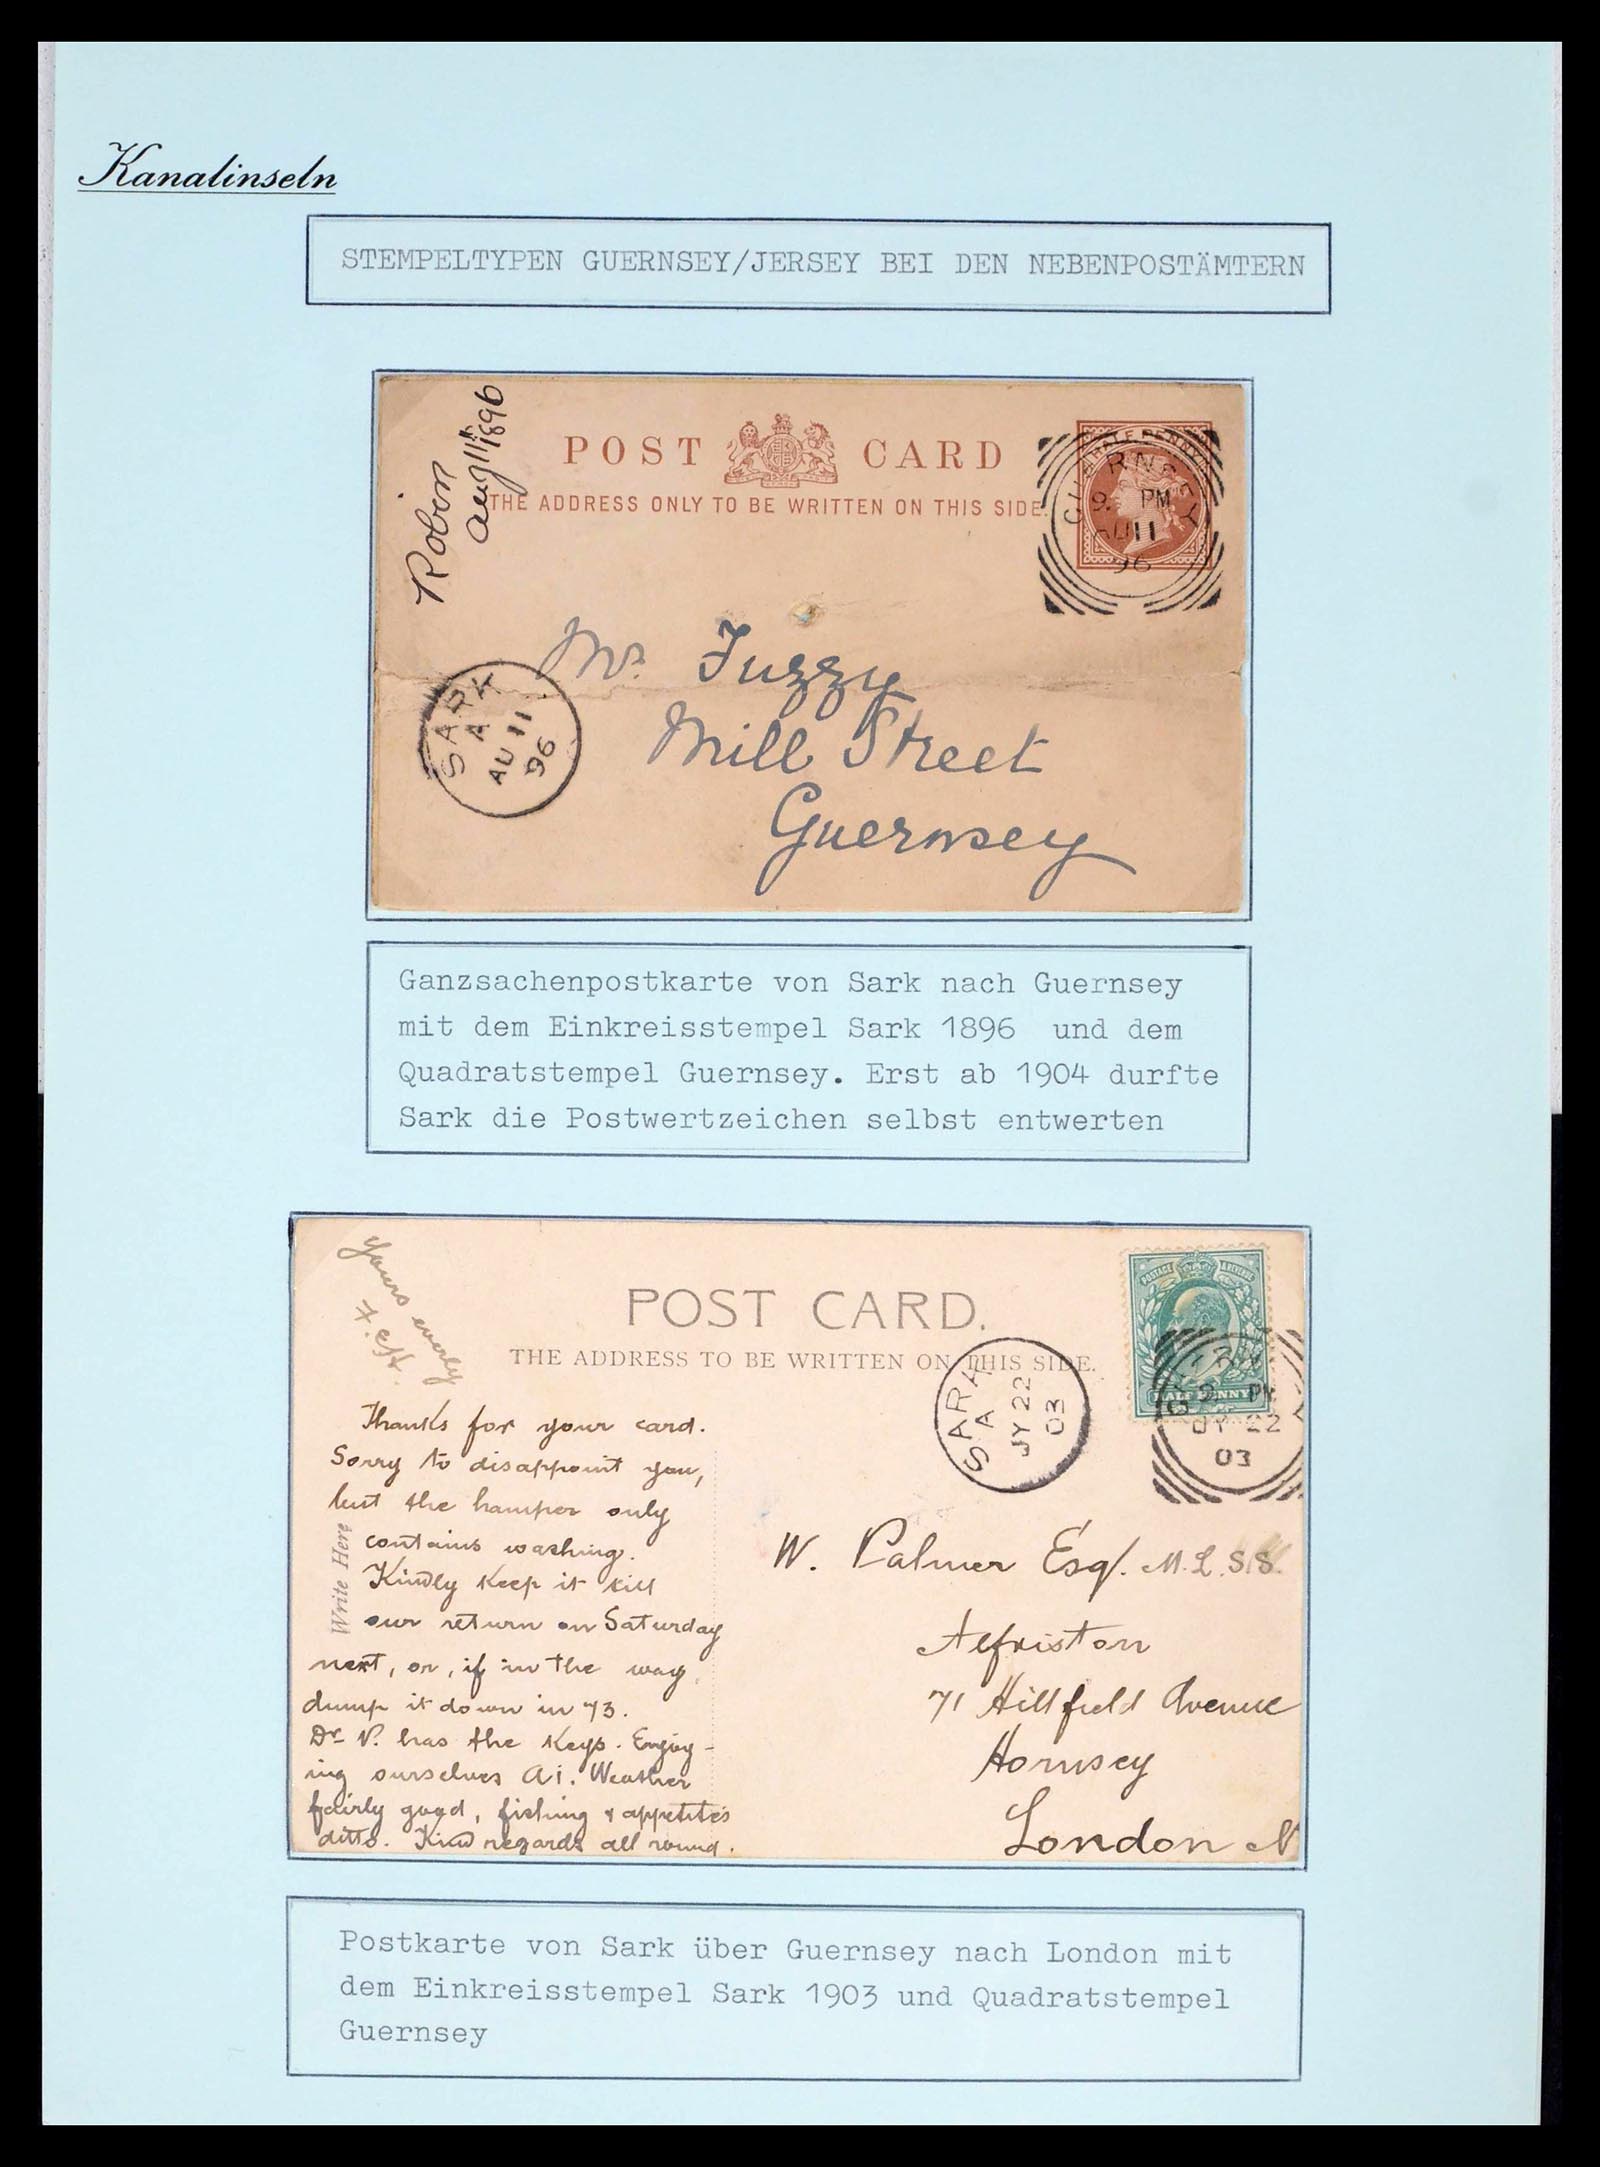 Kanalinseln
STEMPELTYPEN GUERNSEY/JERSEY BEI DEN NEBENPOSTÄMTERN
Robin
Aug 11th 1896
POST CARD
THE ADDRESS ONLY TO BE WRITTEN ON THIS SIDE.
HALF PENNY
GUERNSEY
9. PM
AU 11
96
SARK
A
AU 11
96
Mr. Fuzzy
Mill Street
Guernsey
Ganzsachenpostkarte von Sark nach Guernsey
mit dem Einkreisstempel Sark 1896 und dem
Quadratstempel Guernsey. Erst ab 1904 durfte
Sark die Postwertzeichen selbst entwerten
Yours everly
POST CARD.
THE ADDRESS TO BE WRITTEN ON THIS SIDE.
POSTAGE & REVENUE
HALF PENNY
PM
JY 22
03
SARK
A
JY 22
03
Write Here
Thanks for your card.
Sorry to disappoint you,
but the hamper only
contains washing.
Kindly keep it till
our return on Saturday
next, or, if in the way
dump it down in 73.
Dr. P. has the keys. Enjoy-
ing ourselves A1. Weather
fairly good, fishing & appetites
ditto. Kind regards all round.
W. Palmer Esq. M.L.S.S.
Alfriston
71 Hillfield Avenue
Hornsey
London N
Postkarte von Sark über Guernsey nach London mit
dem Einkreisstempel Sark 1903 und Quadratstempel
Guernsey